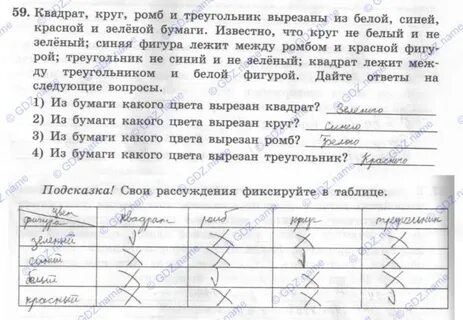 59. Квадрат, круг, ромб и треугольник вырезаны из белой, синей,
красной и зелёной бумаги. Известно, что круг не белый и не
зелёный; синяя фигура лежит между ромбом и красной фигу-
рой; треугольник не синий и не зелёный; квадрат лежит меж-
ду треугольником и белой фигурой. Дайте ответы на
следующие вопросы.
1) Из бумаги какого цвета вырезан квадрат? Зелёного
2) Из бумаги какого цвета вырезан круг? Синего
3) Из бумаги какого цвета вырезан ромб? Белого
4) Из бумаги какого цвета вырезан треугольник? Красного
Подсказка! Свои рассуждения фиксируйте в таблице.
цвет
фигура квадрат ромб круг треугольник
зелёный
синий
белый
красный
GDZ.name